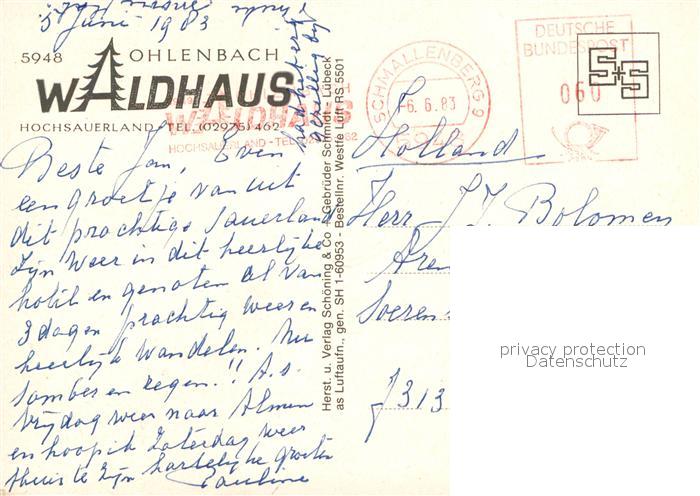 5 Juni 1983
5948 OHLENBACH
WALDHAUS
HOCHSAUERLAND · TEL. (02975) 462
WALDHAUS
HOCHSAUERLAND - TEL.
SCHMALLENBERG 9
-6. 6. 83
DEUTSCHE
BUNDESPOST
060
S+S
Beste Jan, Even
een groetje van uit
dit prachtige Sauerland
Zijn weer in dit heerlijke
hotel en genoten al van
3 dagen prachtig weer en
heerlijk wandelen. Nu
somber en regen.!! A.s.
Vrijdag weer naar
en hoop ik Zaterdag weer
thuis te zijn hartelijke groeten
Pauline
Herst. u. Verlag Schöning & Co + Gebrüder Schmidt - Lübeck
as Luftaufn., gen. SH 1-60953 - Bestellnr. Westfe Luft RS 5501
Holland
Herr J.J. Bolomey
Aren
Soeren
7313
privacy protection
Datenschutz